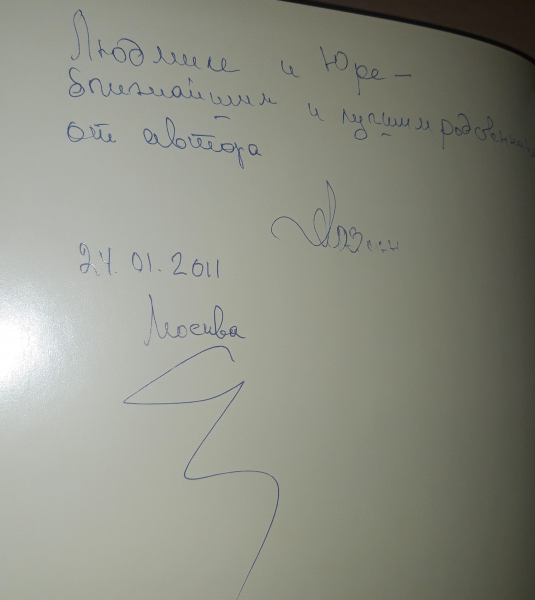 Людмиле и Юре –
ближайшим и лучшим
от автора
24.01.2011
Москва